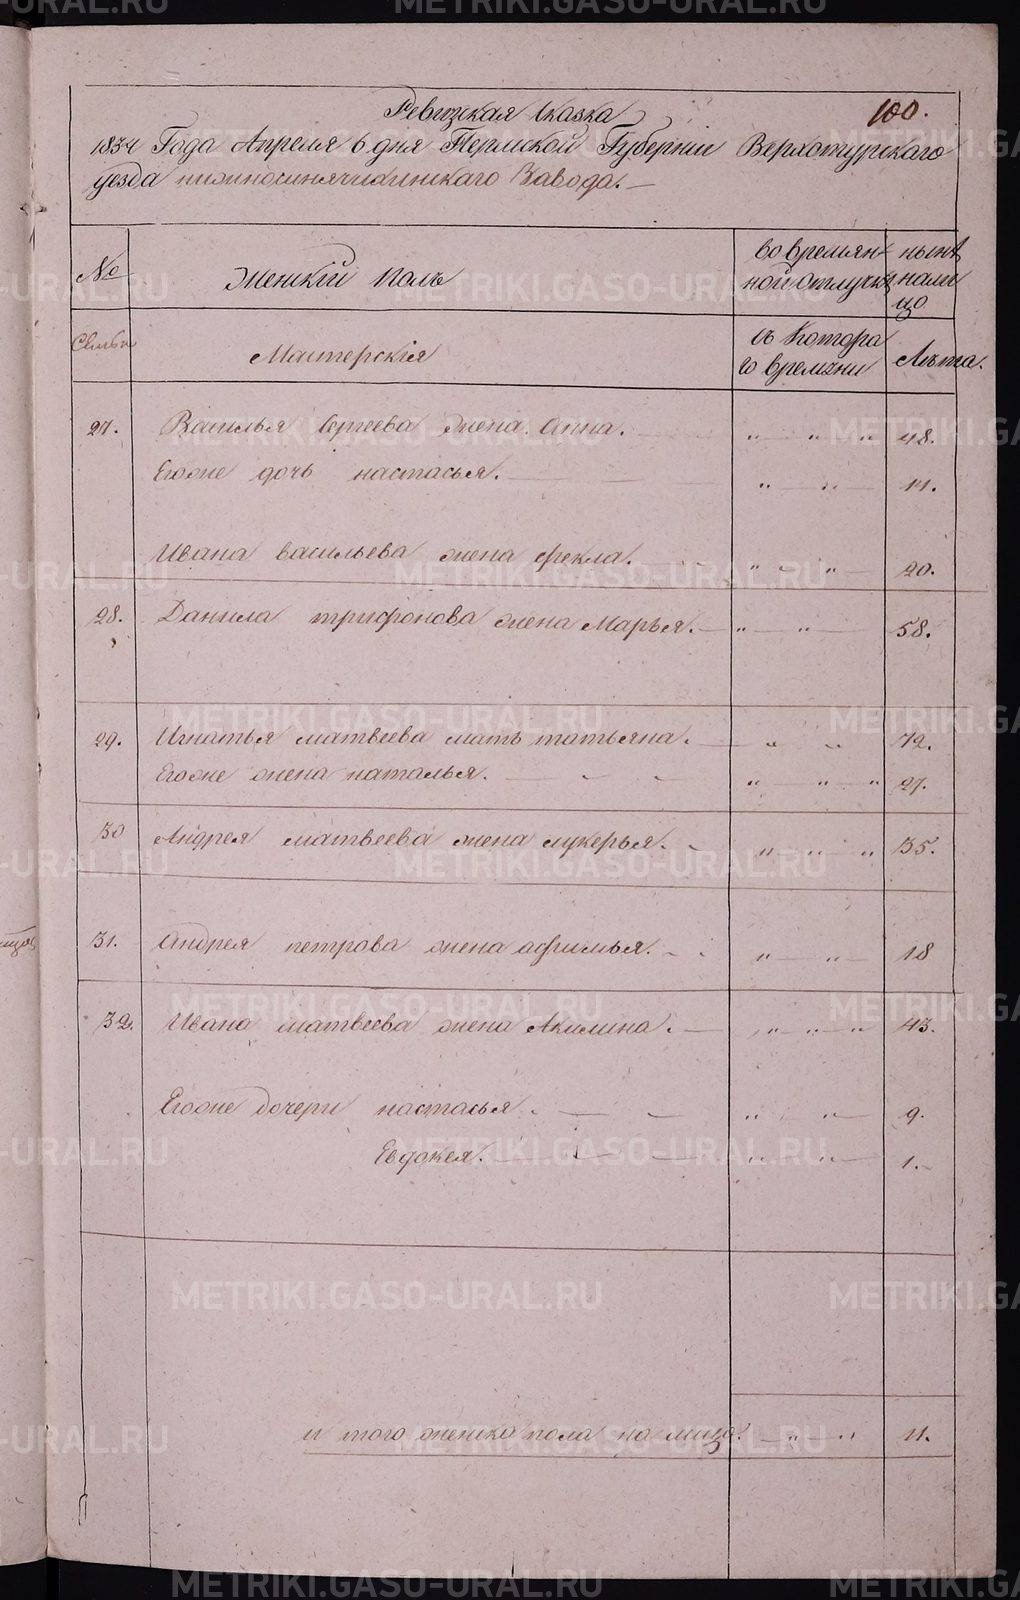 100.
Ревизская Сказка
1834 Года Апреля 6 дня Пермской Губернии Верхотурского
уезда нижнесинячихинскаго Завода.
№
Женский полъ
во времян-
ной отлучкѣ
нынѣ
нали
цо
Семьи
Мастерскія
съ Котора
го времени
Лѣта.
27. Василья Сергеева Жена Анна. " " " 48.
Егоже дочь настасья. " " 11.
Ивана васильева жена фекла. " " 20.
28. Данила трифонова жена Марья. " " 58.
29. Игнатья матвеева мать татьяна. " " 72.
Егоже жена наталья. " " " 27.
30 Андрея матвеева жена лукерья. " " " 35.
31. Андрея петрова жена афимья. " " 18
32. Ивана матвеева жена Акилина. " " " 43.
Егоже дочери настасья. " " 9.
Евдокея. " " 1.
и того женска пола на лицо. " " 11.
METRIKI.GASO-URAL.RU